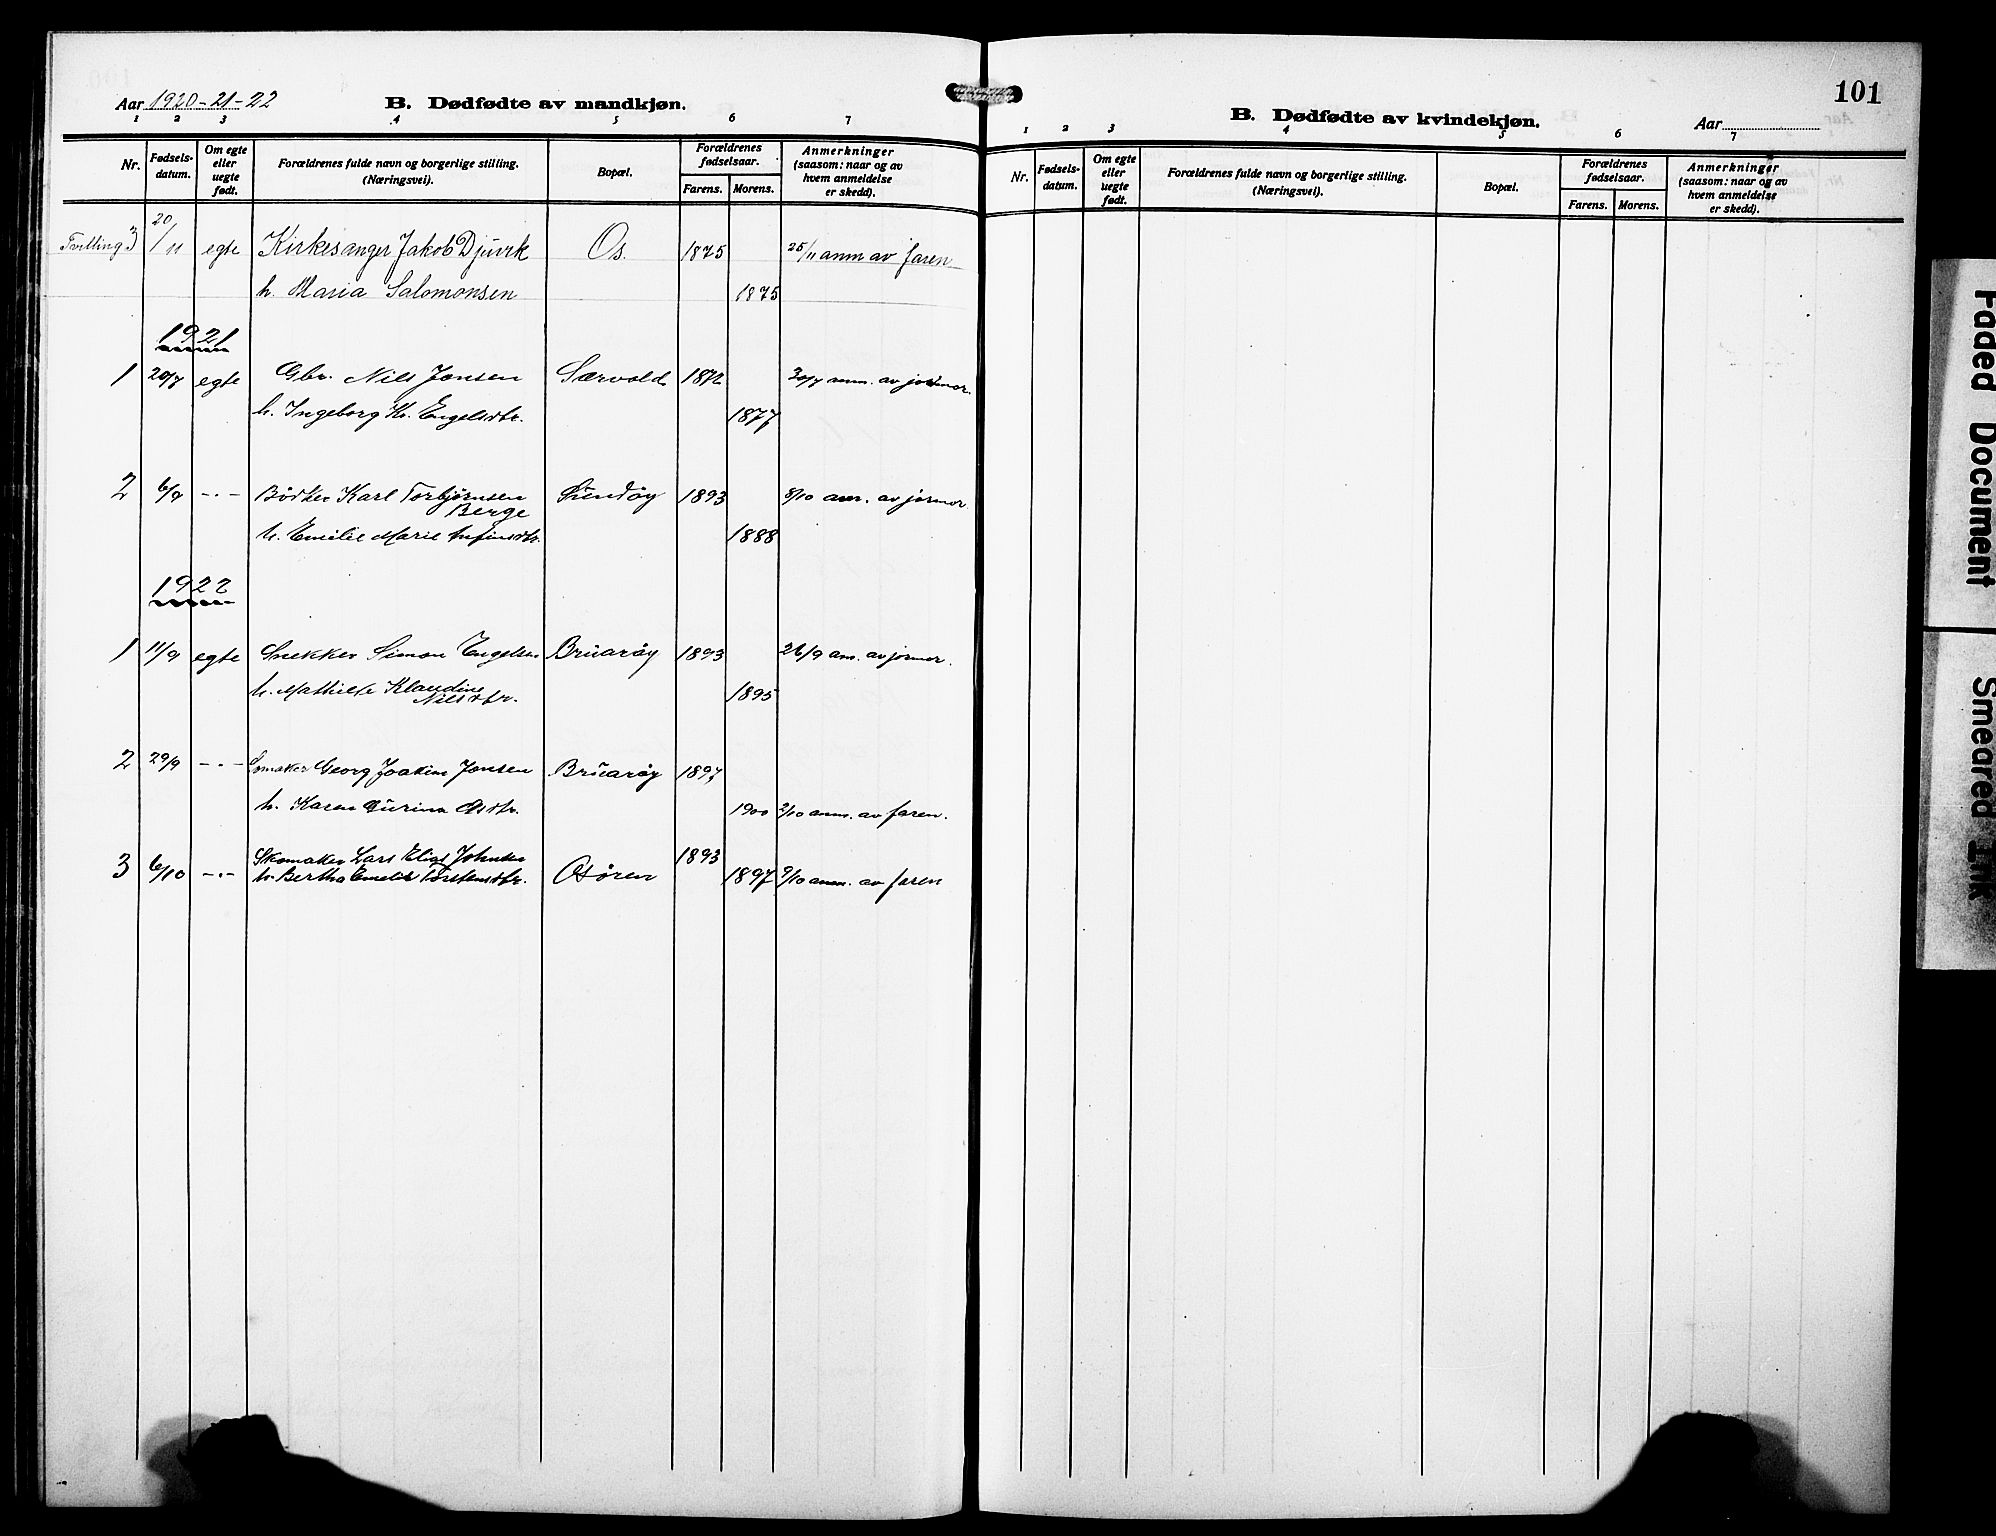 Aar 1920-21-22 B. Dødfødte av mandkjøn.
1 2 3 4 5 6 7
Nr. Fødsels-datum. Om egte eller uegte født. Forældrenes fulde navn og borgerlige stilling. (Næringsvei). Bopæl. Forældrenes fødselsaar. Farens. Morens. Anmerkninger (saasom: naar og av hvem anmeldelse er skedd).
Tvilling 3 20/11 egte Kirkesanger Jakob Djuvik Os. 1875 25/11 anm av faren
h. Maria Salomonsen 1875
1921
1 20/7 egte Gbr. Nils Jansen Særvold 1872 30/7 anm. av jormor.
h. Ingeborg Kr. Engelsdtr. 1877
2 6/9 -"- Bødker Karl Torbjørnsen Sundøy 1893 8/10 anm. av jormor
Berge
h. Emilie Marie 1888
1922
1 11/9 egte Snekker Simon Engelsen Bruarøy 1893 26/9 am. av jormor.
h. Mathilde Klaudine
Nilsdtr. 1895
2 29/9 -"- Georg Joakim Jansen Bruarøy 1897
h. Karen 1900 2/10 anm. av faren.
Skomaker Lars Elias Johnsen 1893
3 6/10 -"- h. Bertha Emelie Torstensdtr. Osøren 1897 9/10 anm. av faren
101
B. Dødfødte av kvindekjøn. Aar
1 2 3 4 5 6 7
Nr. Fødsels-datum. Om egte eller uegte født. Forældrenes fulde navn og borgerlige stilling. (Næringsvei). Bopæl. Forældrenes fødselsaar. Farens. Morens. Anmerkninger (saasom: naar og av hvem anmeldelse er skedd).
Faded Document
Smeared Ink